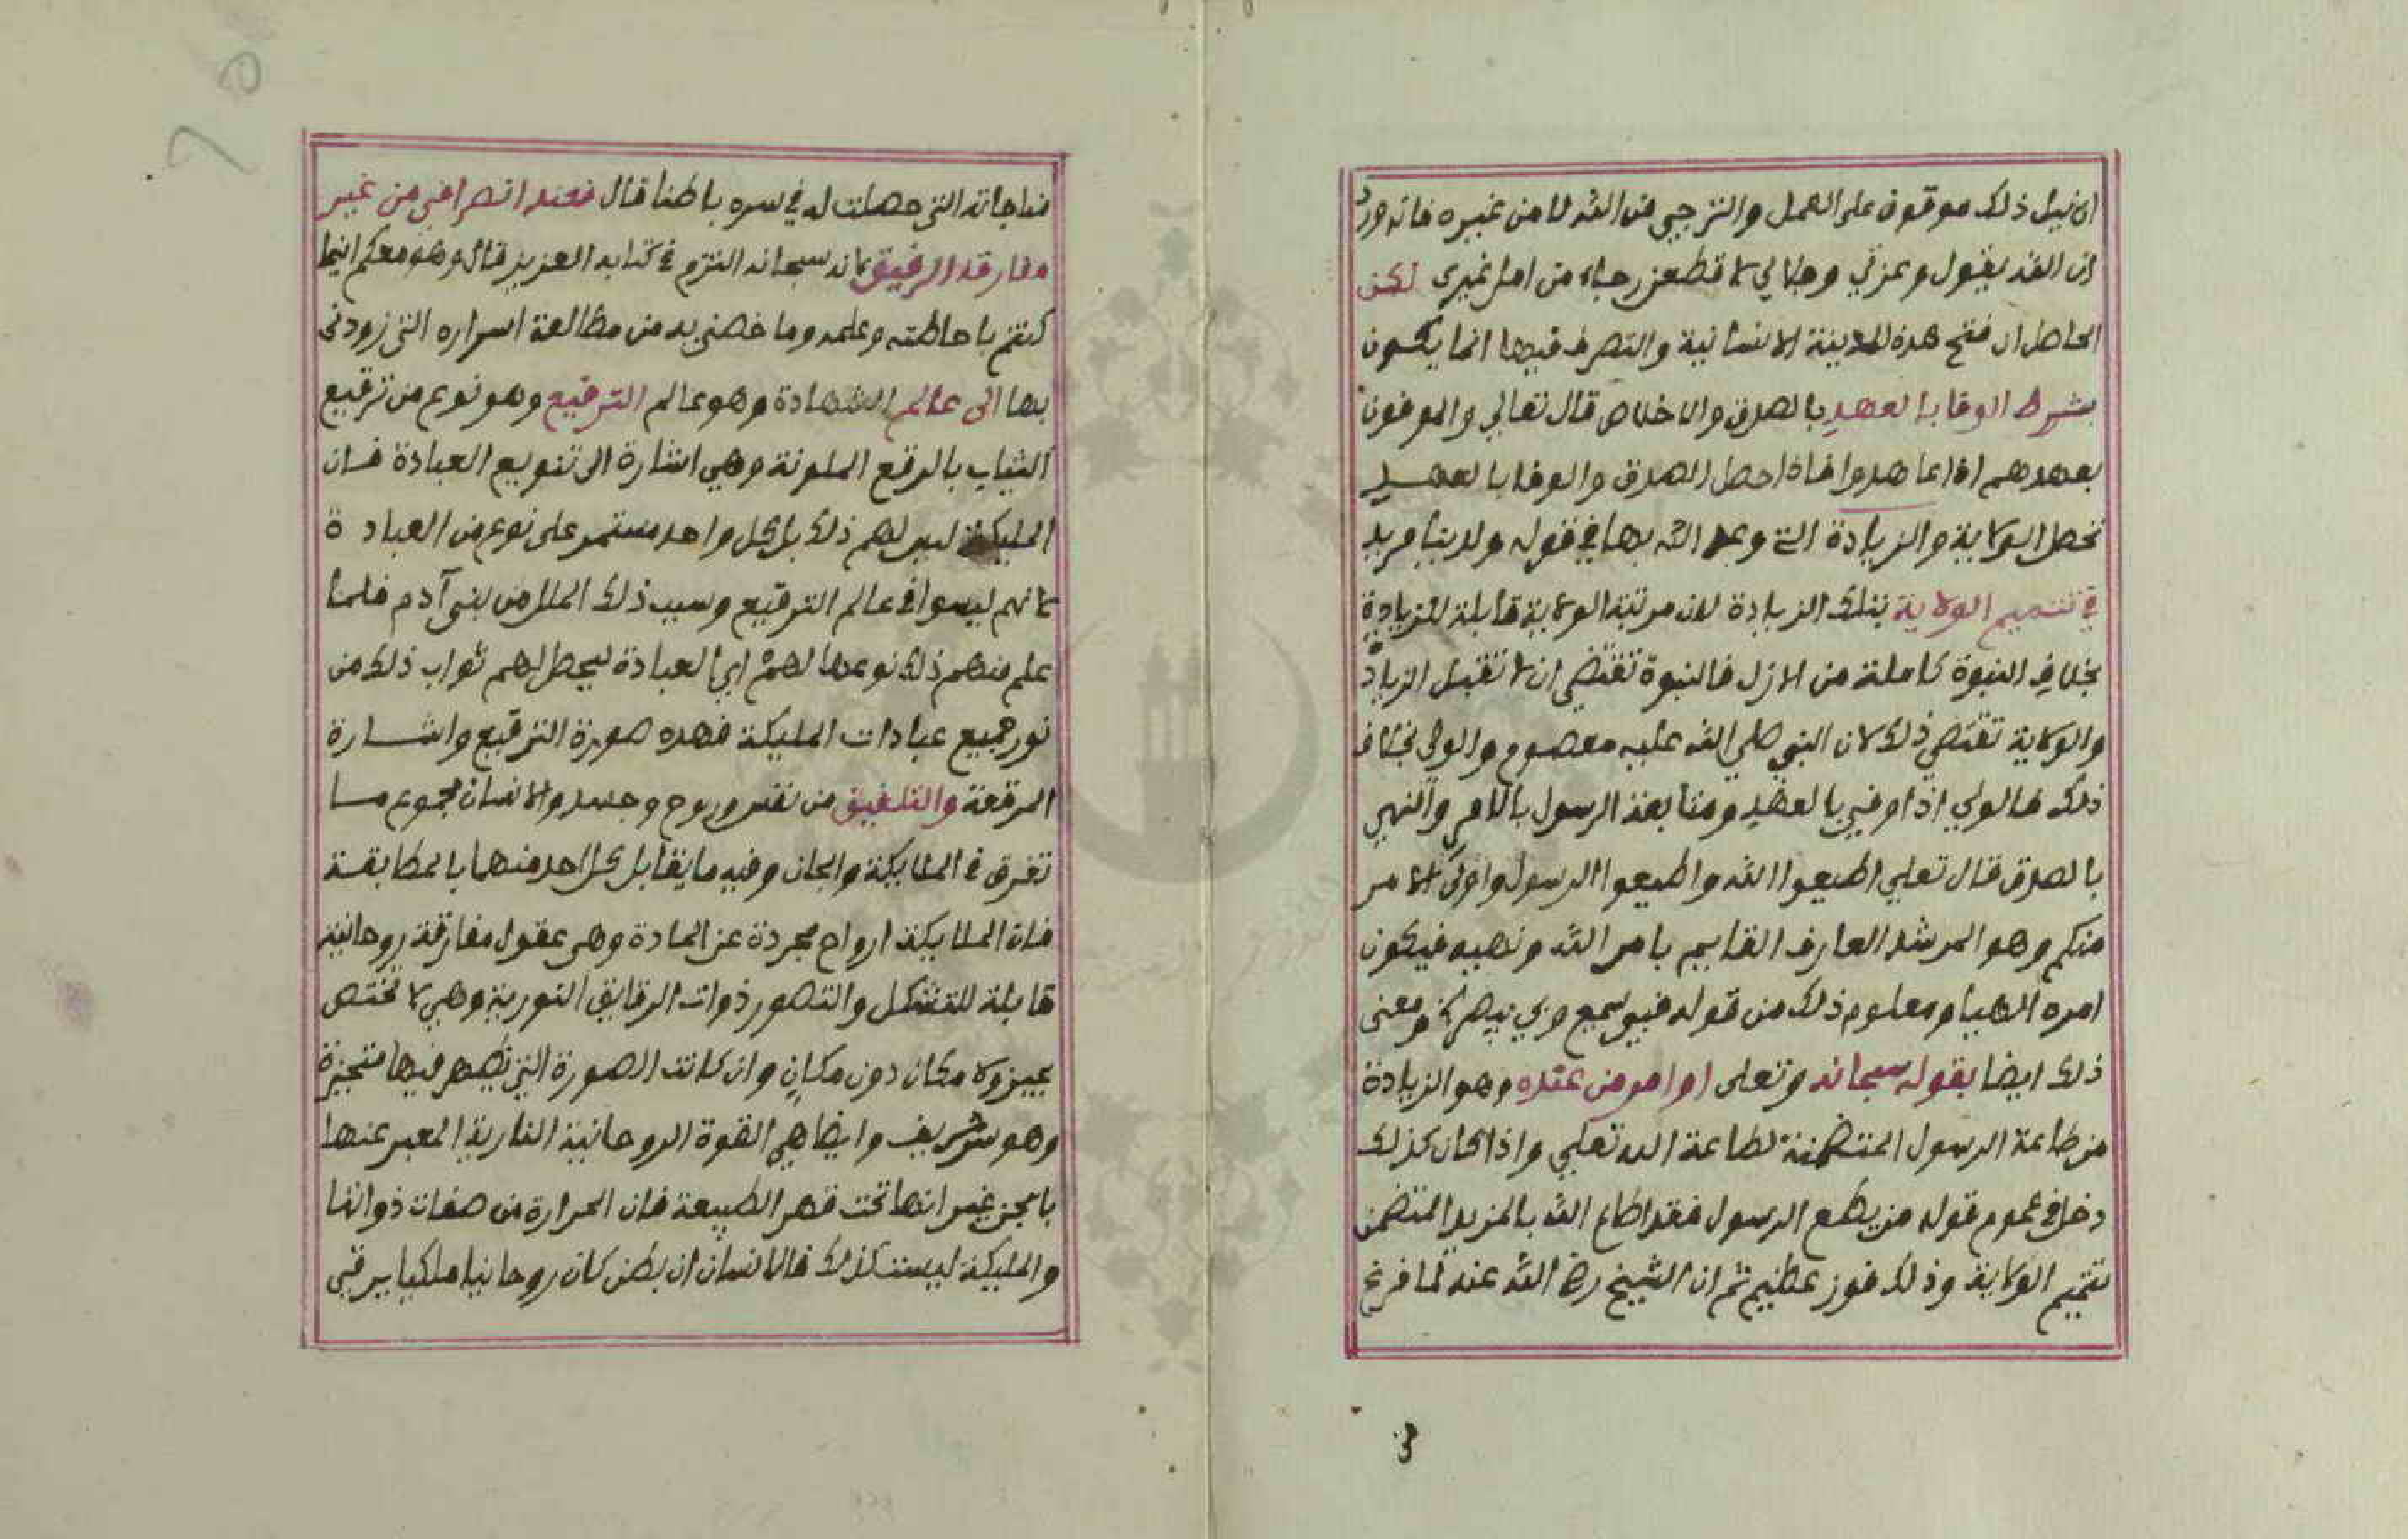 ان نيل ذلك موقوف على العمل والترجي من الله لا من غيره فانه ورد
ان الله يقول وعزتي وجلالي لا قطعن رجاء من امل غيري لكن
الحاصل ان فتح هذه المدينة الانسانية والتصرف فيها انما يكون
بشرط الوفا بالعهد بالصدق والاخلاص قال تعالي والموفون
بعهدهم اذا عاهدوا فاذا حصل الصدق والوفا بالعهد
تحصل الولاية والزيادة التي وعد الله بها في قوله ولدينا مزيد
في تتميم الولاية بتلك الزيادة لان مرتبة الولاية قابلة للزيادة
بخلاف النبوة كاملة من الازل فالنبوة تقتضي ان لا تقبل الزيادة
والولاية تقتضي ذلك لان النبي صلي الله عليه معصوم والولي بخلاف
ذلك فالولي اذا وفي بالعهد ومتابعة الرسول بالامر والنهي
بالصدق قال تعلي اطيعوا الله واطيعوا الرسول واولي الامر
منكم وهو المرشد العارف القايم بامر الله ونهيه فيكون
امره الهيا ومعلوم ذلك من قوله فبي يسمع وبي يبصر ومعنى
ذلك ايضا بقوله سبحانه وتعلى او امر من عنده وهو الزيادة
من طاعة الرسول المتضمنة لطاعة الله تعلي واذا كان كذلك
دخل في عموم قوله من يطع الرسول فقد اطاع الله بالمزيد المتضمن
تتميم الولاية وذلك فوز عظيم ثم ان الشيخ رضا الله عنه لما فرغ
مناجاته التي حصلت له في سره باطنا قال فعند انصرافي من غير
مفارقة الرفيق لانه سبحانه التزم في كتابه العزيز قال وهو معكم اينما
كنتم باحاطته وعلمه وما خصني به من مطالعة اسراره التي زودني
بها الى عالم الشهادة وهو عالم الترقيع وهو نوع من ترقيع
الثياب بالرقع الملونة وهي اشارة الى تنويع العبادة فان
المليكة ليس لهم ذلك بل كل واحد مستمر على نوع من العبادة
لانهم ليسوا في عالم الترقيع وسبب ذلك الملل من بني آدم فلما
علم منهم ذلك نوعها لهم اي العبادة ليحصل لهم ثواب ذلك من
نور جميع عبادات المليكة فهذه صورة الترقيع واشارة
المرقعة والتلفيق من نفس وروح وجسد والانسان مجموع ما
تفرق في الملايكة والجان وفيه ما يقابل كل احد منهما بالمطابقة
فان الملايكة ارواح مجردة عن المادة وهي عقول مفارقة روحانية
قابلة للتشكل والتصور ذوات الرقايق النورية وهي لا تختص
بحيز ولا مكان دون مكان وان كانت الصورة التي تظهر فيها متحيزة
وهو سر شريف وايضا هي القوة الروحانية النارية المعبر عنها
بالجن غير انها تحت قهر الطبيعة فان الحرارة من صفات ذواتها
والمليكة ليست كذلك فالانسان ان بطن كان روحانيا ملكيا يرقي